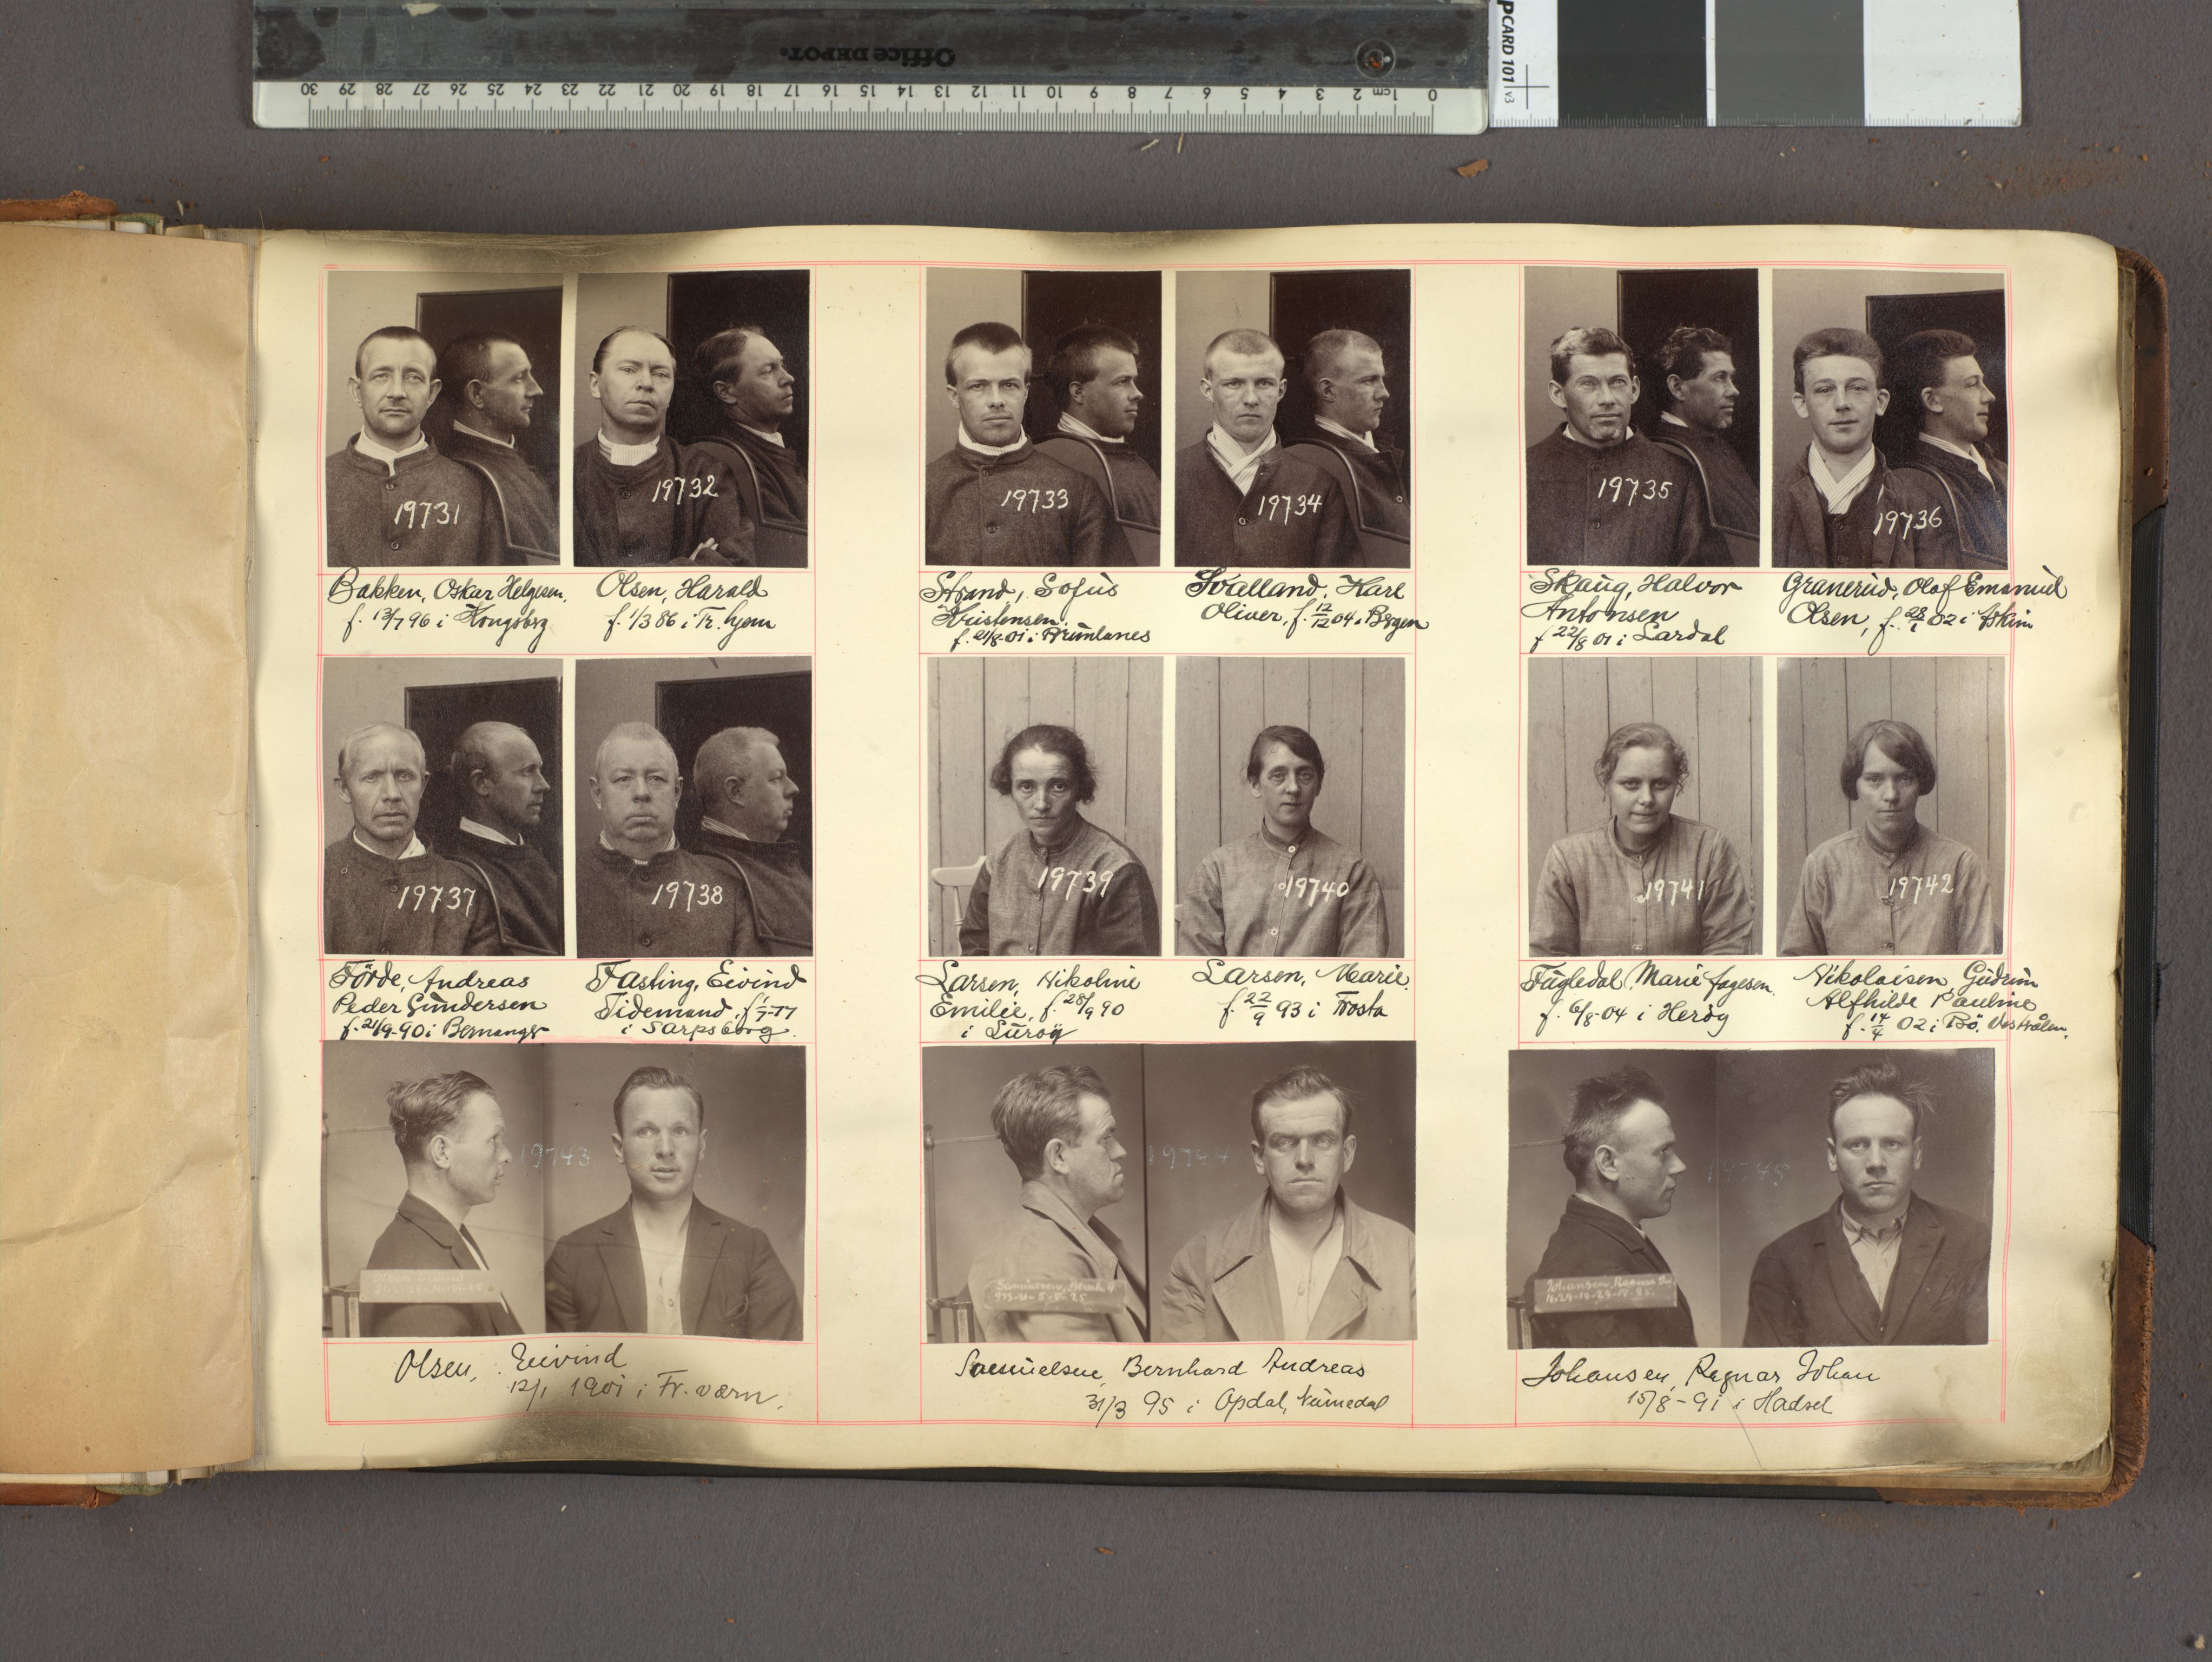 Office DEPOT.
30 29 28 27 26 25 24 23 22 21 20 19 18 17 16 15 14 13 12 11 10 9 8 7 6 5 4 3 2 1cm 0
PCARD 101 v3
19731
19732
19733
19734
19735
19736
Bakken, Oskar Helgesen.
f. 13/7 96 i Kongsberg
Olsen, Harald
f. 1/3 86 i Tr.hjem
Strand, Sofus
Kristensen.
f. 21/8 01 i Brunlanes
Svalland, Karl
Oliver, f. 12/12 04 i Bergen
Skaug, Halvor
Antonsen
f 22/8 01 i Lardal
Granerud, Olof Emanuel
Olsen, f. 28/1 02 i Askim
19737
19738
19739
19740
19741
19742
Förde, Andreas
Peder Gundersen
f. 21/9-90 i Bremanger
Fasting, Eivind
Tidemand, f 1/7-77
i Sarpsborg.
Larsen, Nikoline
Emilie, f. 28/9 90
i Luröy
Larsen, Marie.
f. 22/9 93 i Frosta
Fugledal, Marie Jagesen.
f. 6/8-04 i Heröy
Nikolaisen, Gudrun
Alfhilde Pauline
f. 14/4 02 i Bö. Vesterålen.
19743
19744
19745
Johansen, Ragnar
Olsen, Eivind
12/1 1901 i Fr.værn.
Samuelsen, Bernhard Andreas
31/3 95 i Opdal, Numedal
Johansen, Ragnar Johan
15/8-91 i Hadsel